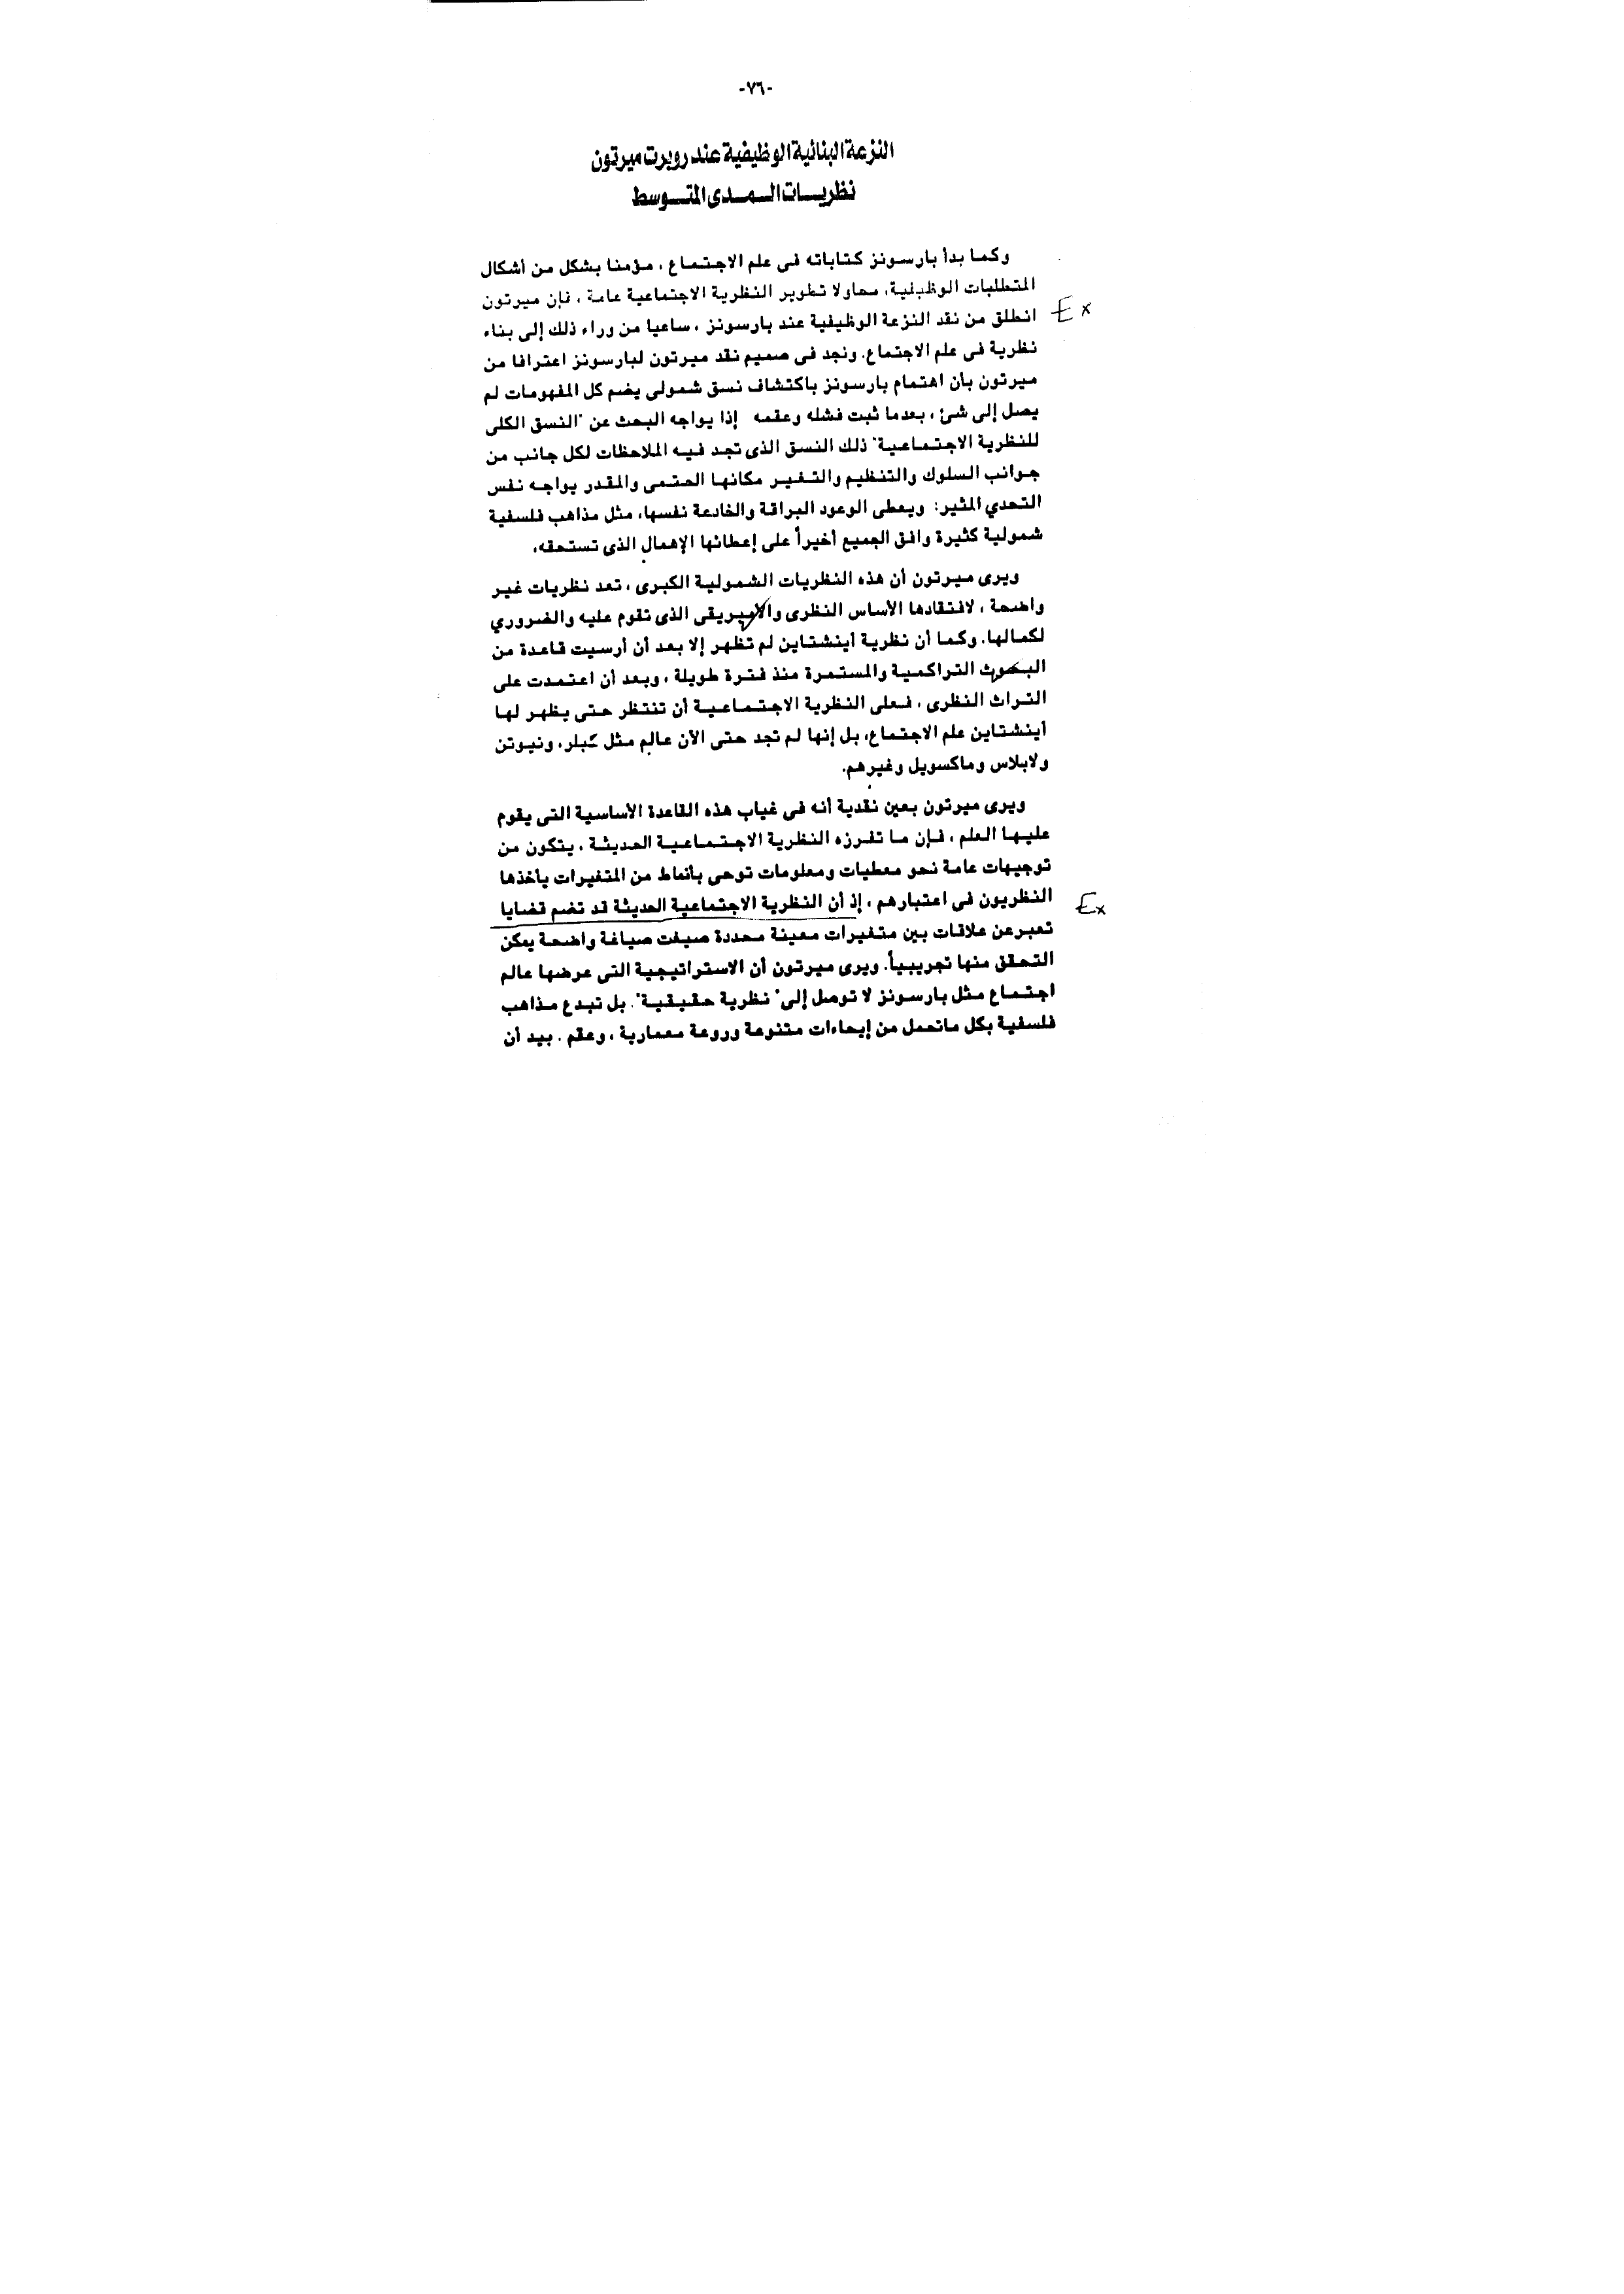 -٧٦-
النزعة البنائية الوظيفية عند روبرت ميرتون
نظريـــات الـــمـــدى المتـــوسط
وكما بدأ بارسونز كتاباته فى علم الاجتماع ، مؤمنا بشكل من أشكال
المتطلبات الوظيفية، محاولا تطوير النظرية الاجتماعية عامة ، فإن ميرتون
Ex
انطلق من نقد النزعة الوظيفية عند بارسونز ، ساعيا من وراء ذلك إلى بناء
نظرية فى علم الاجتماع. ونجد فى صميم نقد ميرتون لبارسونز اعترافا من
ميرتون بأن اهتمام بارسونز باكتشاف نسق شمولى يضم كل المفهومات لم
يصل إلى شئ ، بعدما ثبت فشله وعقمه إذا يواجه البحث عن "النسق الكلى
للنظرية الاجتماعية" ذلك النسق الذى تجد فيه الملاحظات لكل جانب من
جوانب السلوك والتنظيم والتغير مكانها الحتمى والمقدر يواجه نفس
التحدي المثير؛ ويعطى الوعود البراقة والخادعة نفسها، مثل مذاهب فلسفية
شمولية كثيرة وافق الجميع أخيراً على إعطائها الإهمال الذى تستحقه.
ويرى ميرتون أن هذه النظريات الشمولية الكبرى ، تعد نظريات غير
واضحة ، لافتقادها الأساس النظرى والامبريقى الذى تقوم عليه والضروري
لكمالها. وكما أن نظرية أينشتاين لم تظهر إلا بعد أن أرسيت قاعدة من
البحوث التراكمية والمستمرة منذ فترة طويلة ، وبعد أن اعتمدت على
التراث النظرى ، فعلى النظرية الاجتماعية أن تنتظر حتى يظهر لها
أينشتاين علم الاجتماع، بل إنها لم تجد حتى الآن عالم مثل كبلر، ونيوتن
ولابلاس وماكسويل وغيرهم.
ويرى ميرتون بعين نقدية أنه فى غياب هذه القاعدة الأساسية التى يقوم
عليها العلم ، فإن ما تفرزه النظرية الاجتماعية الحديثة ، يتكون من
توجيهات عامة نحو معطيات ومعلومات توحى بأنماط من المتغيرات يأخذها
النظريون فى اعتبارهم ، إذ أن النظرية الاجتماعية الحديثة قد تضم قضايا
Ex
تعبرعن علاقات بين متغيرات معينة محددة صيغت صياغة واضحة يمكن
التحقق منها تجريبياً. ويرى ميرتون أن الاستراتيجية التى عرضها عالم
اجتماع مثل بارسونز لا توصل إلى" نظرية حقيقية". بل تبدع مذاهب
فلسفية بكل ماتحمل من إيحاءات متنوعة وروعة معمارية ، وعقم . بيد أن